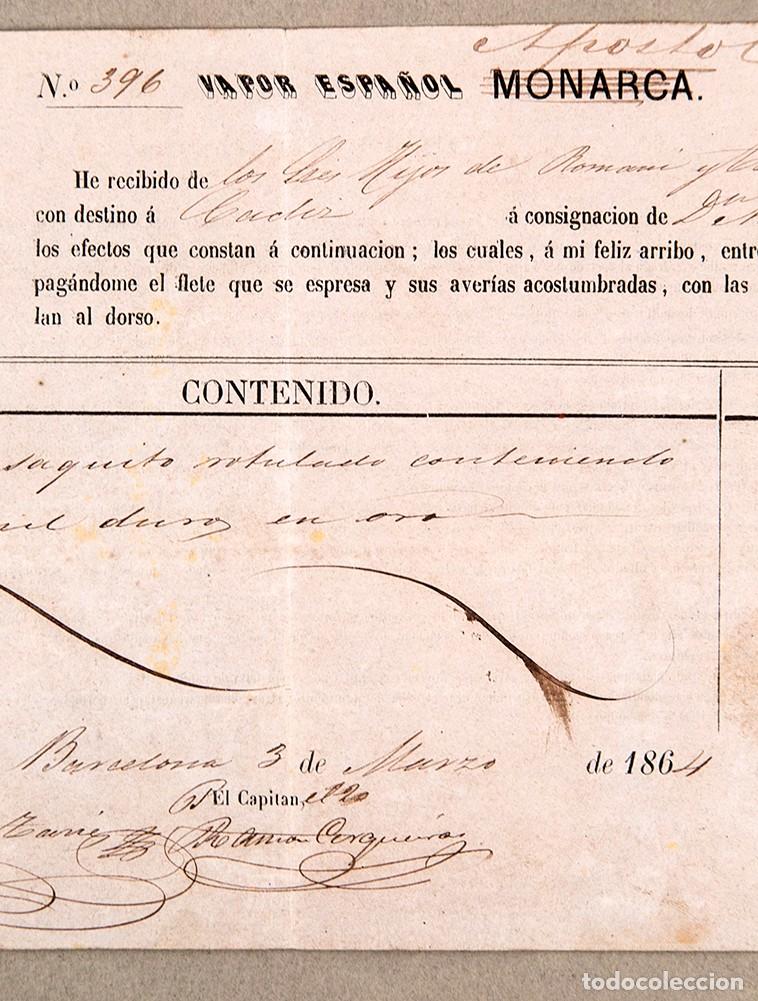 Apostol
N.º 396 VAPOR ESPAÑOL MONARCA.
He recibido de los Sres Hijos de Romani y
con destino á Cadiz á consignacion de Dn
los efectos que constan á continuacion; los cuales, á mi feliz arribo, entre
pagándome el flete que se espresa y sus averías acostumbradas, con las
lan al dorso.
CONTENIDO.
saquito rotulado conteniendo
mil duros en oro
Barcelona 3 de Marzo de 1864
P El Capitan, el 2o
Ramon Cerqueiras
todocoleccion